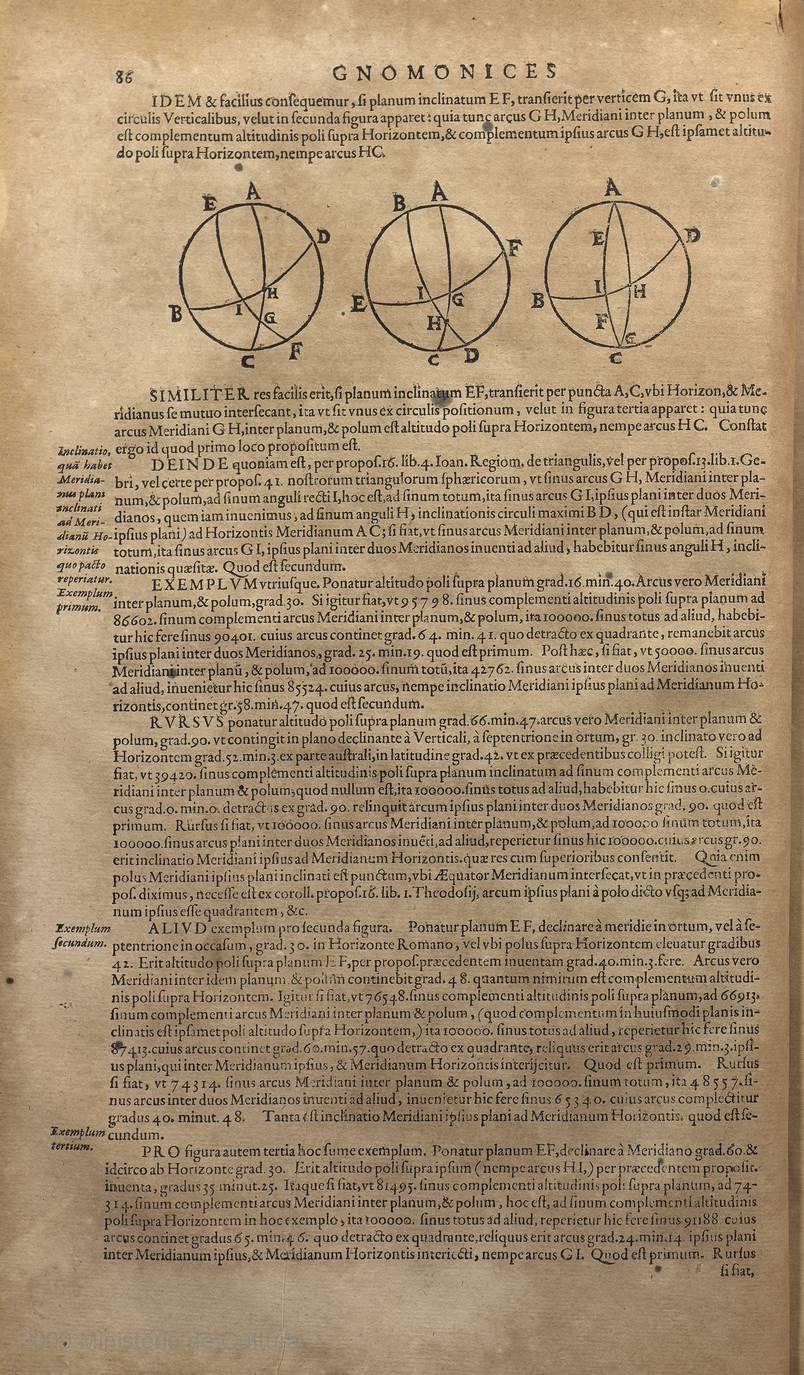 86
GNOMONICES
IDEM & facilius consequemur, si planum inclinatum EF, transierit per verticem G, ita vt sit vnus ex
circulis Verticalibus, velut in secunda figura apparet: quia tunc arcus GH, Meridiani inter planum, & polum
est complementum altitudinis poli supra Horizontem, & complementum ipsius arcus GH, est ipsamet altitu-
do poli supra Horizontem, nempe arcus HC.
E A D B H I G C F
B A F E I G H C D
A E D B I H F G C
SIMILITER res facilis erit, si planum inclinatum EF, transierit per puncta A, C, vbi Horizon, & Me-
ridianus se mutuo intersecant, ita vt sit vnus ex circulis positionum, velut in figura tertia apparet: quia tunc
arcus Meridiani GH, inter planum, & polum est altitudo poli supra Horizontem, nempe arcus HC. Constat
ergo id quod primo loco propositum est.
Inclinatio,
quā habet
Meridia-
nus plani
inclinati
ad Meri-
dianū Ho-
rizontis
quo pacto
reperiatur.
DEINDE quoniam est, per propos. 16. lib. 4. Ioan. Regiom. de triangulis, vel per propos. 13. lib. 1. Ge-
bri, vel certe per propos. 41. nostrorum triangulorum sphæricorum, vt sinus arcus GH, Meridiani inter pla-
num, & polum, ad sinum anguli recti I, hoc est, ad sinum totum, ita sinus arcus GI, ipsius plani inter duos Meri-
dianos, quem iam inuenimus, ad sinum anguli H, inclinationis circuli maximi BD, (qui est instar Meridiani
ipsius plani) ad Horizontis Meridianum AC; si fiat, vt sinus arcus Meridiani inter planum, & polum, ad sinum
totum, ita sinus arcus GI, ipsius plani inter duos Meridianos inuenti ad aliud, habebitur sinus anguli H, incli-
nationis quæsitæ. Quod est secundum.
Exemplum
primum.
EXEMPLVM vtriusque. Ponatur altitudo poli supra planum grad. 16. min. 40. Arcus vero Meridiani
inter planum, & polum, grad. 30. Si igitur fiat, vt 95798. sinus complementi altitudinis poli supra planum ad
86602. sinum complementi arcus Meridiani inter planum, & polum, ita 100000. sinus totus ad aliud, habebi-
tur hic fere sinus 90401. cuius arcus continet grad. 64. min. 41. quo detracto ex quadrante, remanebit arcus
ipsius plani inter duos Meridianos, grad. 25. min. 19. quod est primum. Post hæc, si fiat, vt 50000. sinus arcus
Meridiani inter planū, & polum, ad 100000. sinum totū, ita 42762. sinus arcus inter duos Meridianos inuenti
ad aliud, inuenietur hic sinus 85524. cuius arcus, nempe inclinatio Meridiani ipsius plani ad Meridianum Ho-
rizontis, continet gr. 58. min. 47. quod est secundum.
RVRSVS ponatur altitudo poli supra planum grad. 66. min. 47. arcus vero Meridiani inter planum &
polum, grad. 90. vt contingit in plano declinante à Verticali, à septentrione in ortum, gr. 30. inclinato vero ad
Horizontem grad. 52. min. 3. ex parte australi, in latitudine grad. 42. vt ex præcedentibus colligi potest. Si igitur
fiat, vt 39420. sinus complementi altitudinis poli supra planum inclinatum ad sinum complementi arcus Me-
ridiani inter planum & polum, quod nullum est, ita 100000. sinus totus ad aliud, habebitur hic sinus 0. cuius ar-
cus grad. 0. min. 0. detractus ex grad. 90. relinquit arcum ipsius plani inter duos Meridianos grad. 90. quod est
primum. Rursus si fiat, vt 100000. sinus arcus Meridiani inter planum, & polum, ad 100000 sinum totum, ita
100000. sinus arcus plani inter duos Meridianos inuēti, ad aliud, reperietur sinus hic 100000. cuius arcus gr. 90.
erit inclinatio Meridiani ipsius ad Meridianum Horizontis. quæ res cum superioribus consentit. Quia enim
polus Meridiani ipsius plani inclinati est punctum, vbi Æquator Meridianum intersecat, vt in præcedenti pro-
pos. diximus, necesse est ex coroll. propos. 16. lib. 1. Theodosij, arcum ipsius plani à polo dicto vsq; ad Meridia-
num ipsius esse quadrantem, &c.
Exemplum
secundum.
ALIVD exemplum pro secunda figura. Ponatur planum EF, declinare à meridie in ortum, vel à se-
ptentrione in occasum, grad. 30. in Horizonte Romano, vel vbi polus supra Horizontem eleuatur gradibus
42. Erit altitudo poli supra planum EF, per propos. præcedentem inuentam grad. 40. min. 3. fere. Arcus vero
Meridiani inter idem planum, & polum continebit grad. 48. quantum nimirum est complementum altitudi-
nis poli supra Horizontem. Igitur si fiat, vt 76548. sinus complementi altitudinis poli supra planum, ad 66913.
sinum complementi arcus Meridiani inter planum & polum, (quod complementum in huiusmodi planis in-
clinatis est ipsamet poli altitudo supra Horizontem,) ita 100000. sinus totus ad aliud, reperietur hic fere sinus
87413. cuius arcus continet grad. 60. min. 57. quo detracto ex quadrante, reliquus erit arcus grad. 29. min. 3. ipsi-
us plani, qui inter Meridianum ipsius, & Meridianum Horizontis interijcitur. Quod est primum. Rursus
si fiat, vt 74314. sinus arcus Meridiani inter planum & polum, ad 100000. sinum totum, ita 48557. si-
nus arcus inter duos Meridianos inuenti ad aliud, inuenietur hic fere sinus 65340. cuius arcus complectitur
gradus 40. minut. 48. Tanta est inclinatio Meridiani ipsius plani ad Meridianum Horizontis. quod est se-
cundum.
Exemplum
tertium.
PRO figura autem tertia hoc sume exemplum. Ponatur planum EF, declinare à Meridiano grad. 60. &
idcirco ab Horizonte grad. 30. Erit altitudo poli supra ipsum (nempe arcus HI,) per præcedentem proposit.
inuenta, gradus 35 minut. 25. Itaque si fiat, vt 81495. sinus complementi altitudinis poli supra planum, ad 74-
314. sinum complementi arcus Meridiani inter planum, & polum, hoc est, ad sinum complementi altitudinis
poli supra Horizontem in hoc exemplo, ita 100000. sinus totus ad aliud, reperietur hic fere sinus 91188. cuius
arcus continet gradus 65. min. 46. quo detracto ex quadrante, reliquus erit arcus grad. 24. min. 14. ipsius plani
inter Meridianum ipsius, & Meridianum Horizontis interiecti, nempe arcus GI. Quod est primum. Rursus
si fiat,